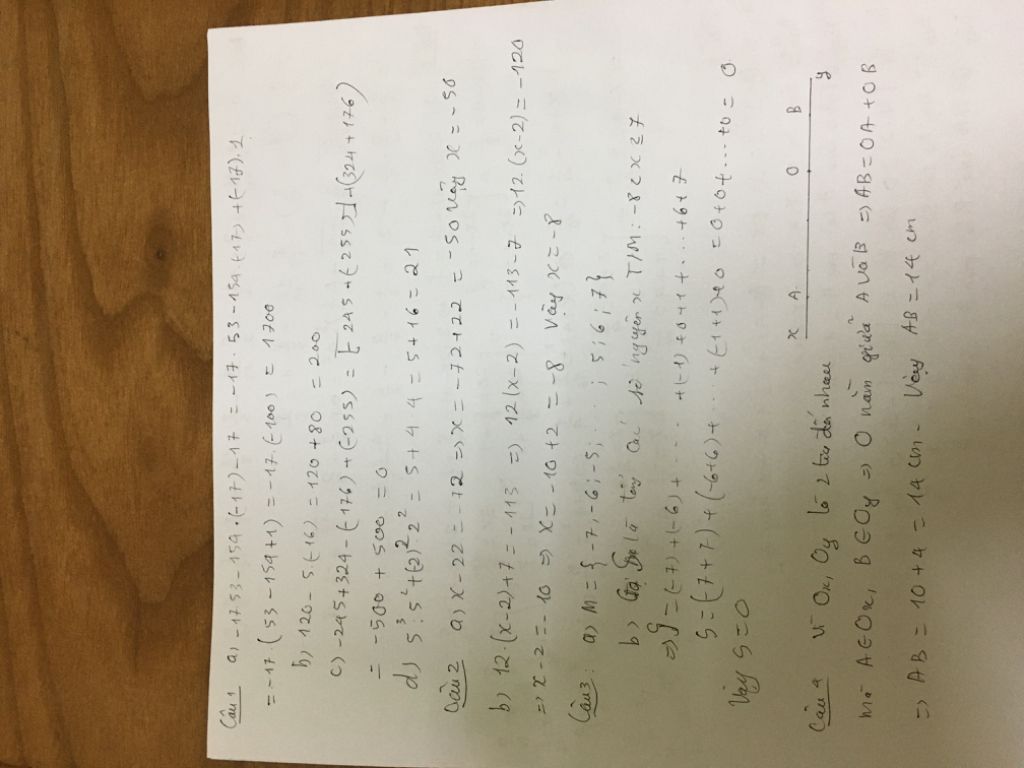 Câu 1 a) -17.53 - 154.(-17) - 17 = -17.53 - 154.(-17) + (-17).1
= -17.(53 - 154 + 1) = -17.(-100) = 1700
b) 120 - 5.(-16) = 120 + 80 = 200
c) -245 + 324 - (-176) + (-255) = [-245 + (-255)] + (324 + 176)
= -500 + 500 = 0
d) 5³ : 5² + (2)² 2² = 5 + 4.4 = 5 + 16 = 21
Câu 2 a) x - 22 = -72 => x = -72 + 22 = -50 Vậy x = -50
b) 12.(x-2) + 7 = -113 => 12(x-2) = -113 - 7 => 12(x-2) = -120
=> x - 2 = -10 => x = -10 + 2 = -8 Vậy x = -8
Câu 3: a) M = {-7; -6; -5; ...; 5; 6; 7}
b) là tổng các số nguyên x T/M: -8 < x ≤ 7
=> S = (-7) + (-6) + .... + (-1) + 0 + 1 + ... + 6 + 7
S = (-7+7) + (-6+6) + ... + (-1+1) + 0 = 0 + 0 + ... + 0 = 0
Vậy S = 0
Câu 4 Vì Ox, Oy là 2 tia đối nhau
x A O B y
mà A ∈ Ox, B ∈ Oy => O nằm giữa A và B => AB = OA + OB
=> AB = 10 + 4 = 14 cm. Vậy AB = 14 cm